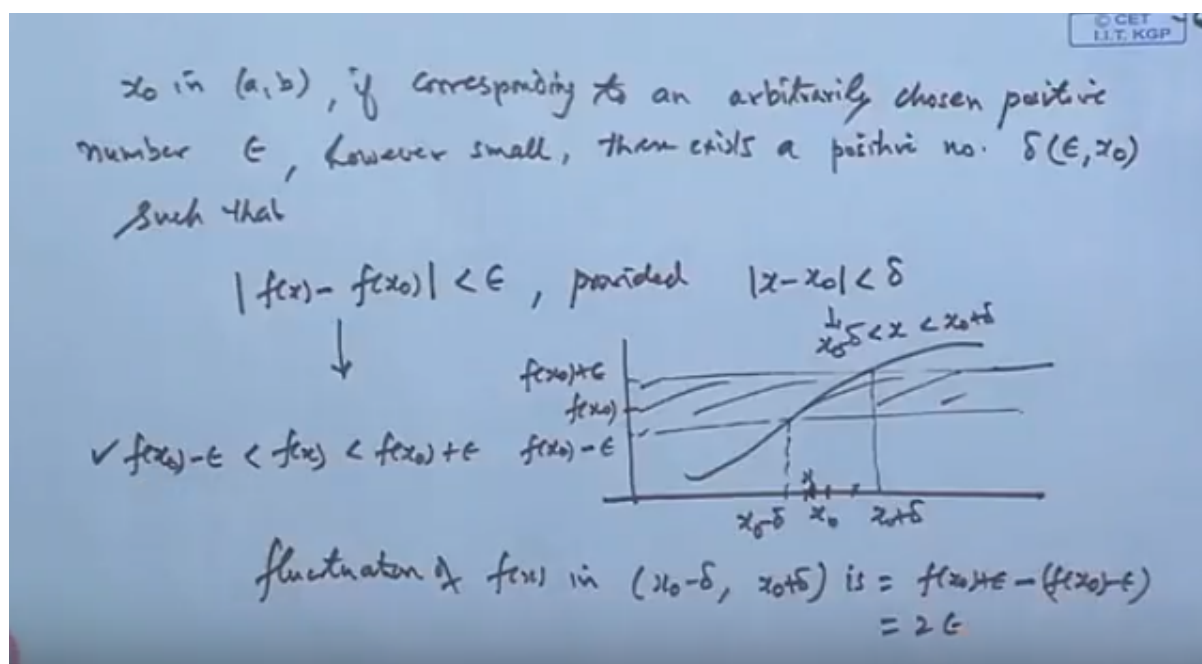 © CET
I.I.T. KGP
x₀ in (a, b), if corresponding to an arbitrarily chosen positive
number ε, however small, there exists a positive no. δ(ε, x₀)
such that
|f(x) - f(x₀)| < ε, provided |x - x₀| < δ
↓
x₀-δ < x < x₀+δ
↓
f(x₀)+ε
f(x₀)
✓ f(x₀)-ε < f(x) < f(x₀)+ε
f(x₀)-ε
x
x₀-δ x₀ x₀+δ
fluctuation of f(x) in (x₀-δ, x₀+δ) is = f(x₀)+ε - (f(x₀)-ε)
= 2ε